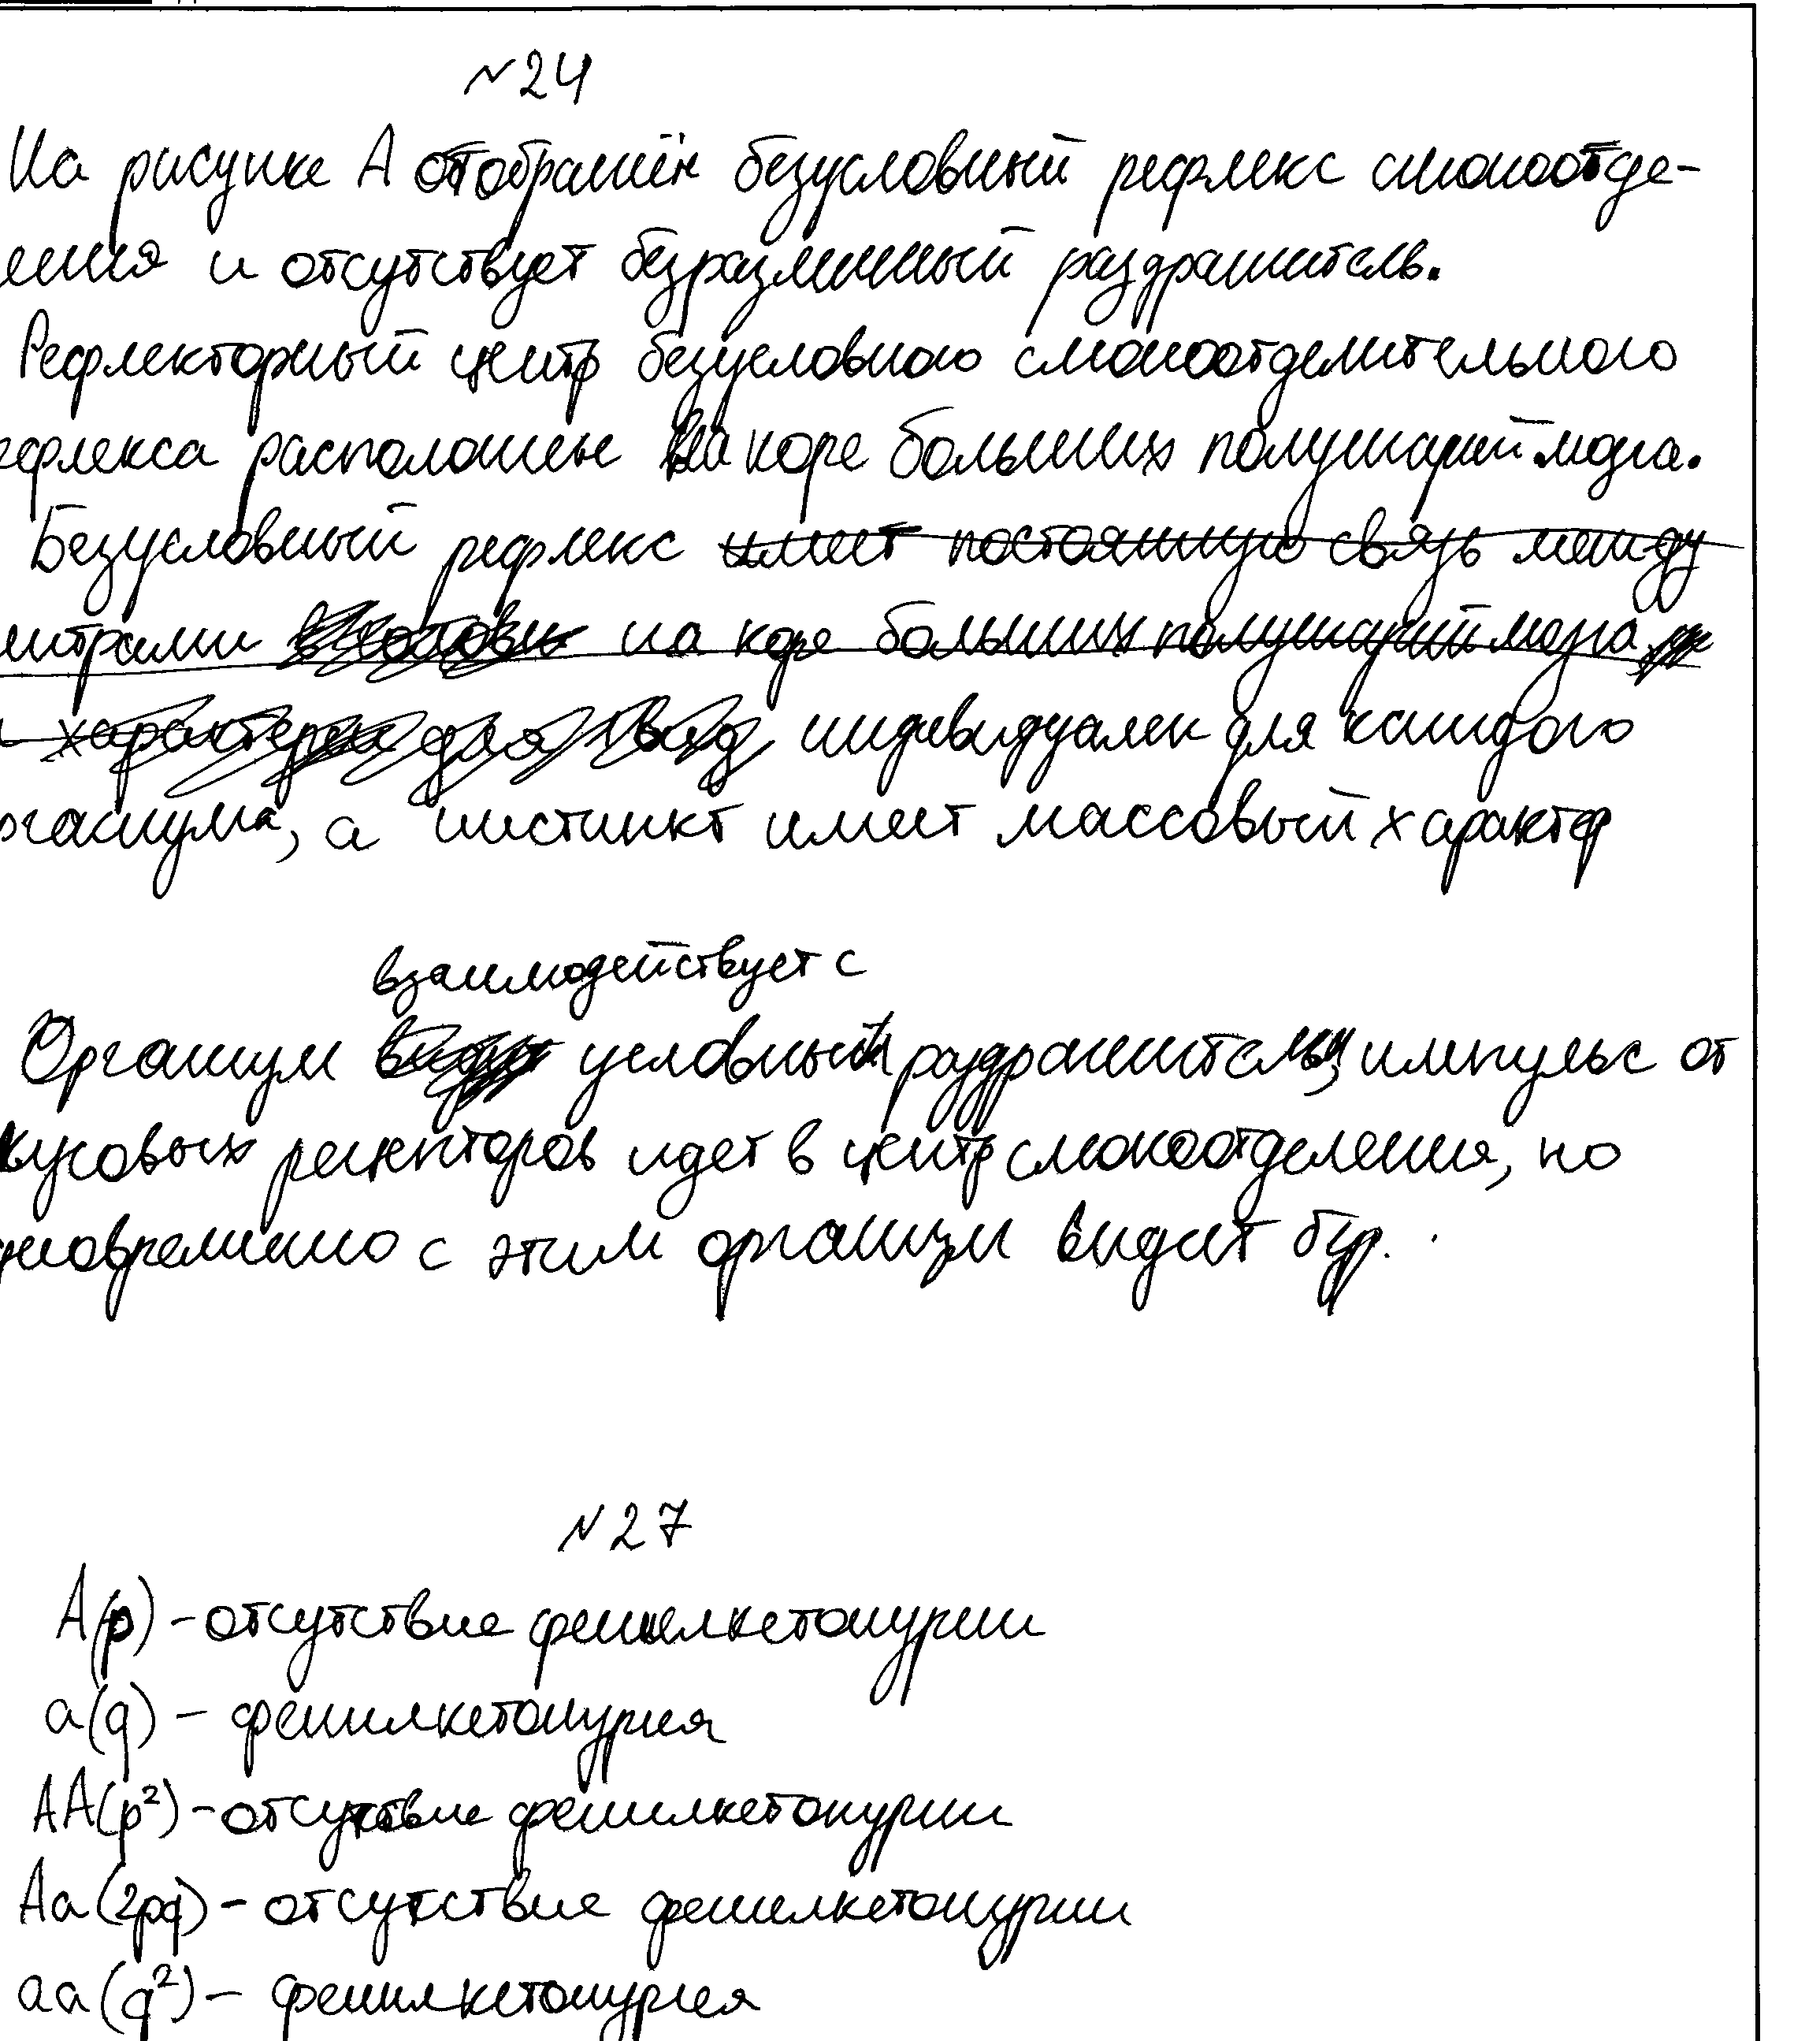 №24
На рисунке А отображён безусловный рефлекс слюноотде-
ления и отсутствует безразличный раздражитель.
Рефлекторный центр безусловного слюноотделительного
рефлекса расположен на коре больших полушарий мозга.
Безусловный рефлекс имеет постоянную связь между
центрами на коре больших полушарий мозга
и характерен для индивидуален для каждого
организма, а инстинкт имеет массовый характер
взаимодействует с
Организм условный раздражитель, импульс от
вкусовых рецепторов идет в центр слюноотделения, но
одновременно с этим организм видит бур.
№27
А(p) - отсутствие фенилкетонурии
а(q) - фенилкетонурия
АА(p²) - отсутствие фенилкетонурии
Аа(2pq) - отсутствие фенилкетонурии
аа(q²) - фенилкетонурия